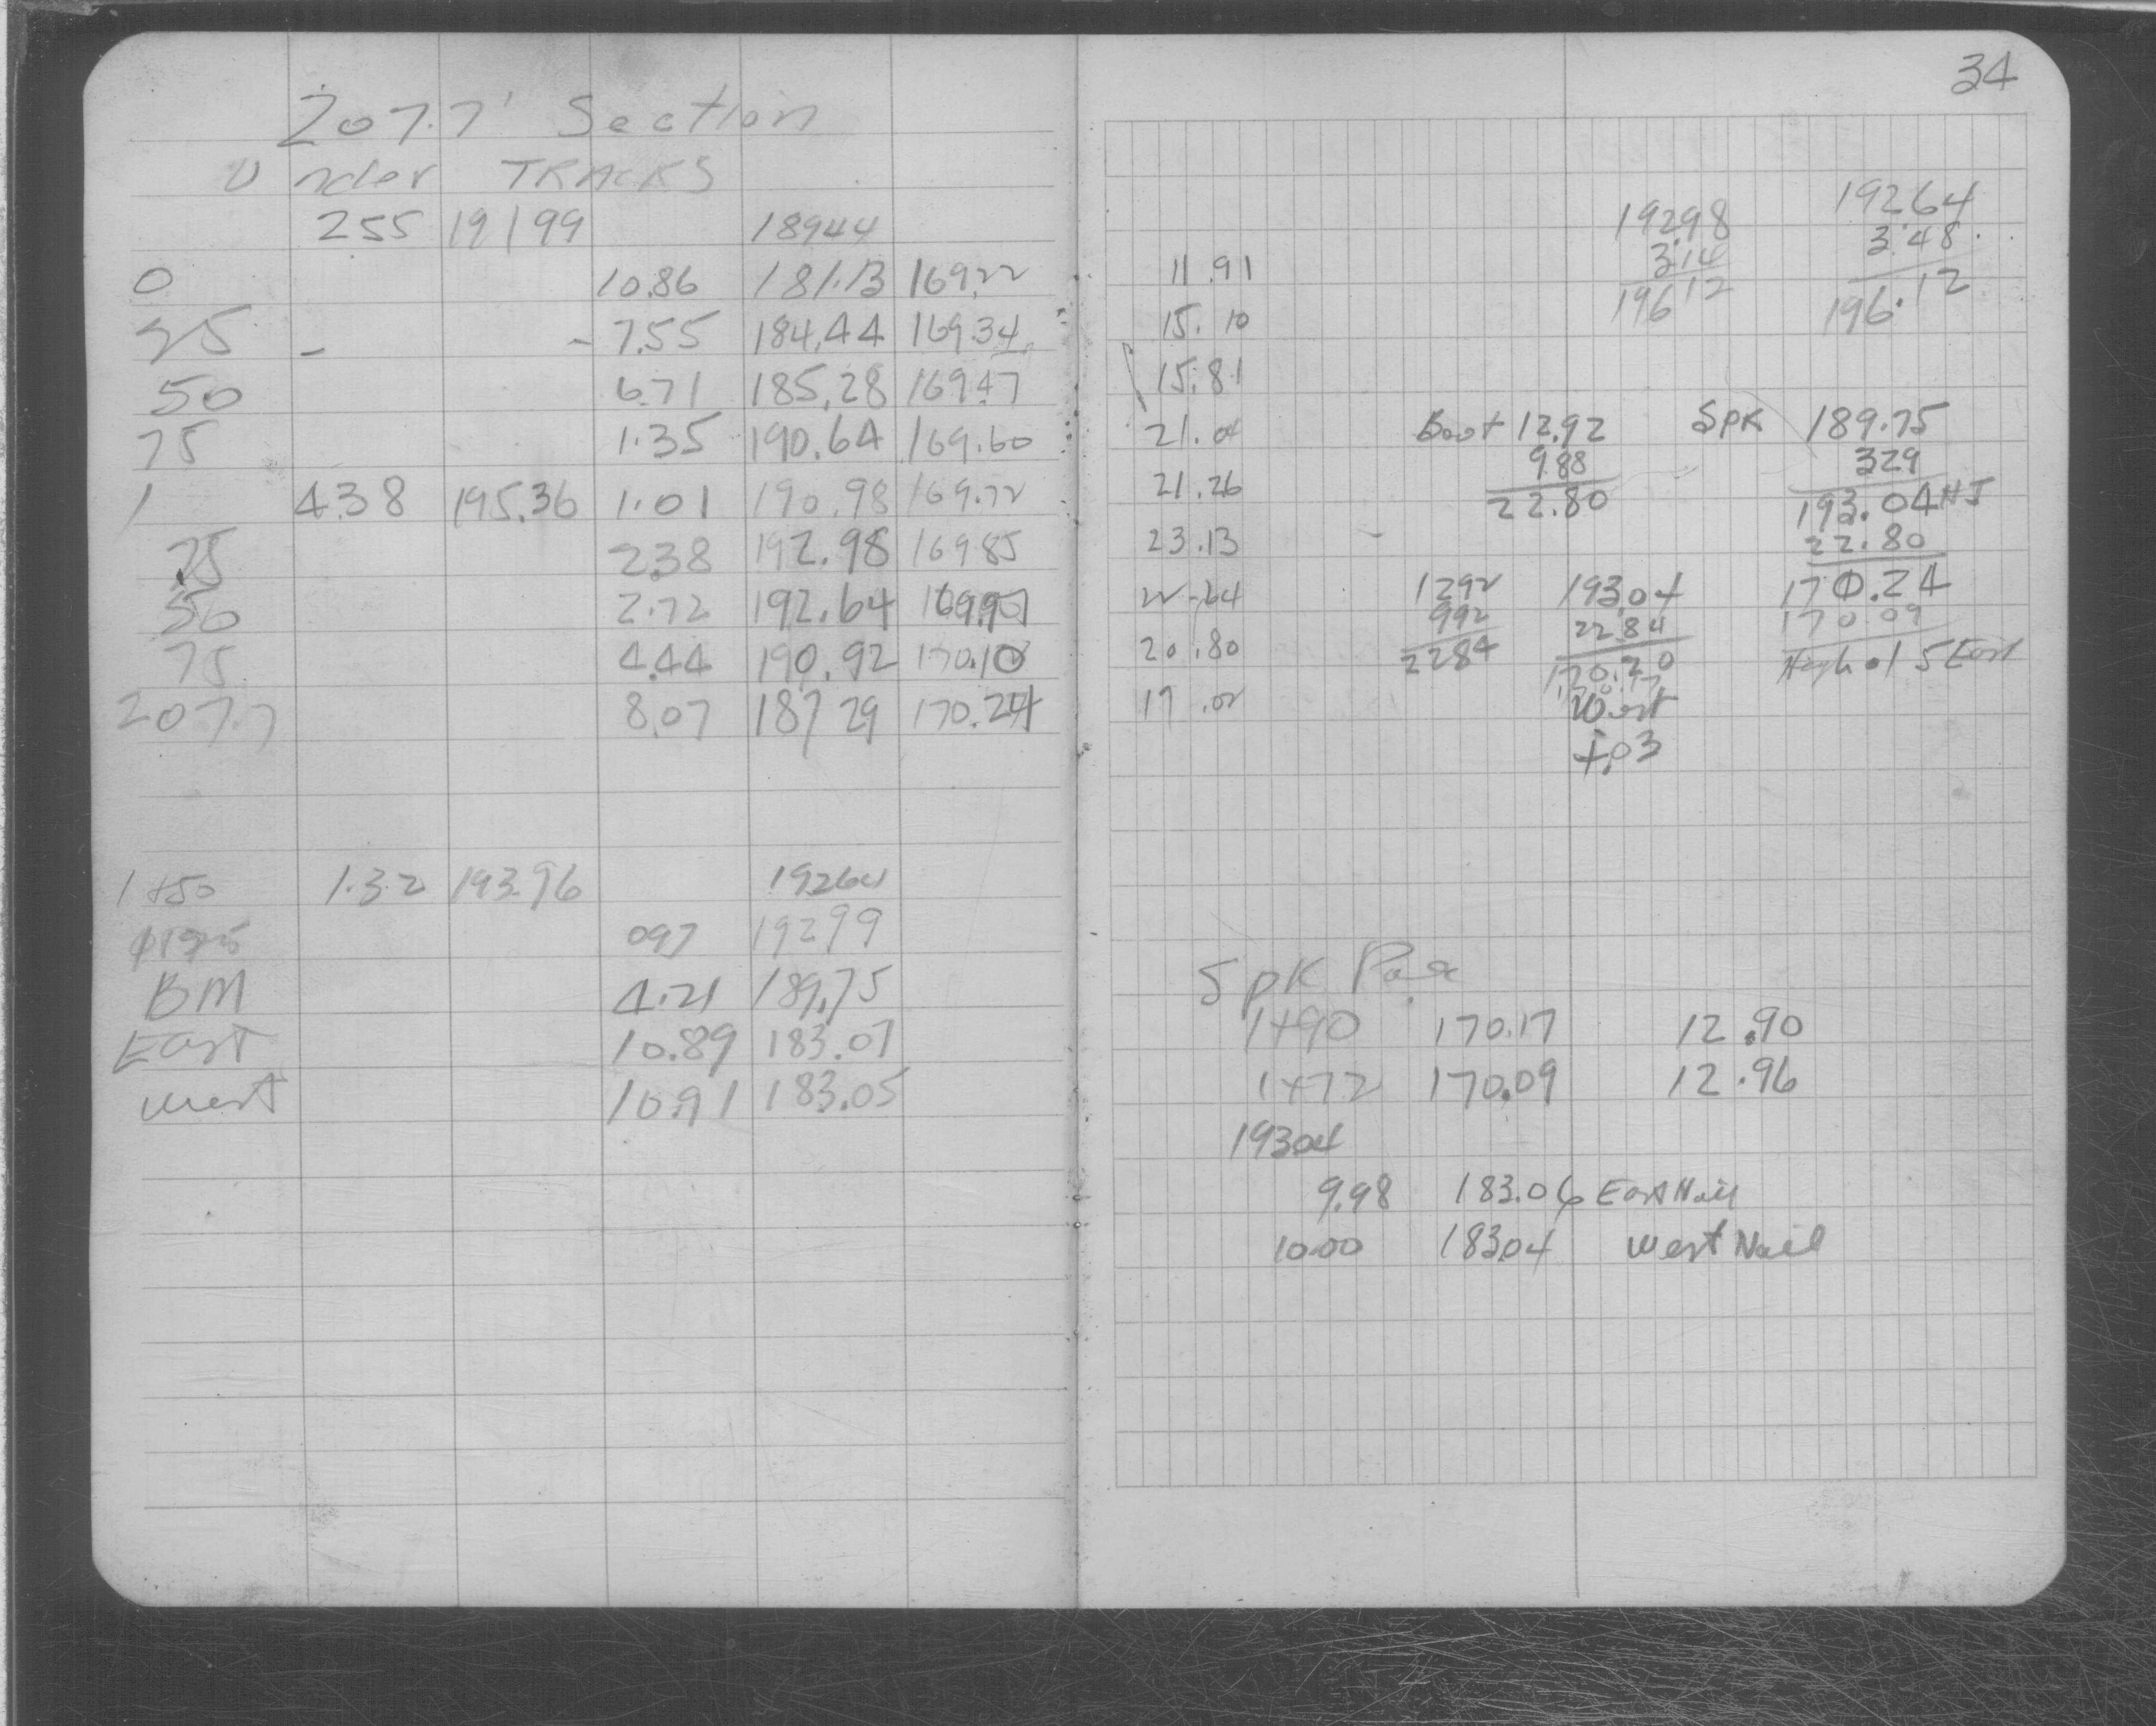 207.7' Section
Under TRACKS
255 19199 18944
0 10.86 181.13 169.22
25 - - 7.55 184.44 169.34
50 6.71 185.28 169.47
75 1.35 190.64 169.60
1 4.38 195.36 1.01 190.98 169.72
25 2.38 192.98 169.85
50 2.72 192.64 169.97
75 4.44 190.92 170.10
207.7 8.07 187 29 170.24
1+50 1.32 193.96 19264
097 19299
BM 4.21 189.75
East 10.89 183.07
West 10.91 183.05
34
11.91
15.10
15.81
21.04
21.26
23.13
22.64
20.80
17.02
19298
3.14
196 12
19264
3.48
196.12
Boot 12.92
9.88
22.80
Spk 189.75
3.29
193.04 HI
22.80
170.24
170.09
High .15 East
1292
992
2284
193.04
22.84
170.20
170.17
West
+.03
Spk
1+90 170.17 12.90
1+72 170.09 12.96
19304
9.98 183.06 East Nail
10.00 18304 West Nail